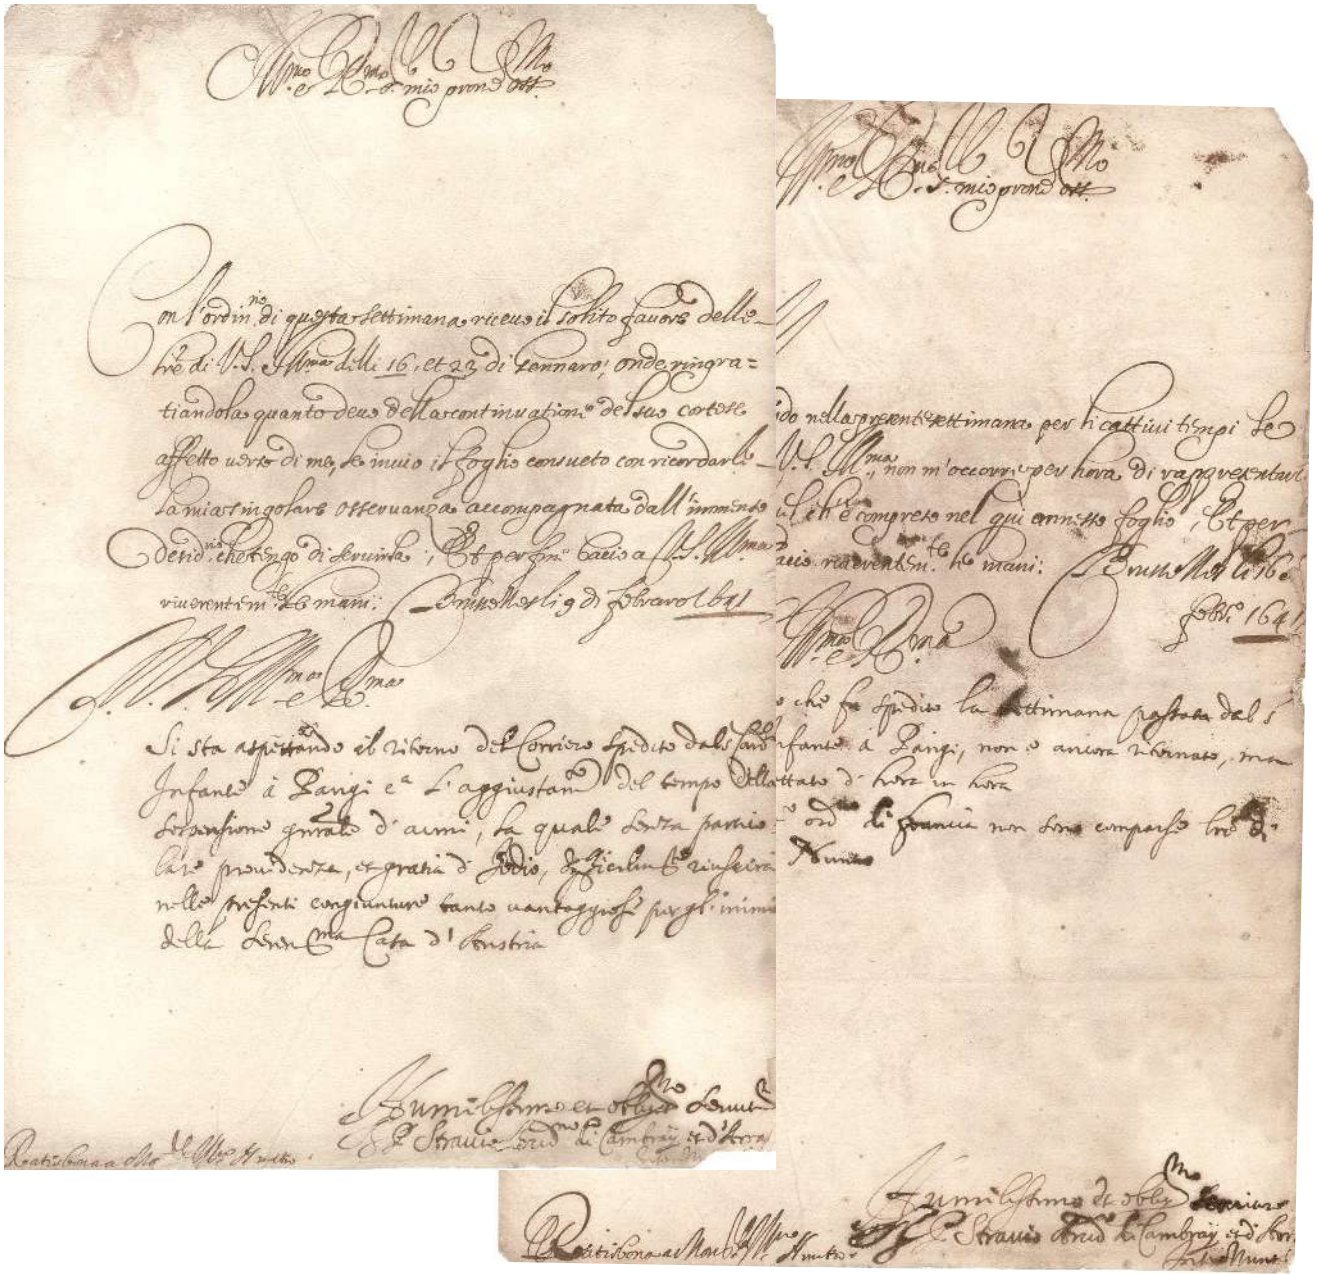 Ill.mo e R.mo S.r mio pron Oss.mo
Con l'ordin.rio di questa settimana riceuo il solito fauore delle
lre di V.S. Ill.ma delli 16. et 23 di Gennaro; onde ringra=
tiandola quanto deuo della continuatione del suo cortese
affetto uerso di me, le inuio il foglio consueto con ricordarle
la mia singolare osseruanza accompagnata dall'immenso
desid.rio che tengo di seruirla; Et per fine bacio a V.S. Ill.ma
riuerentem.te le mani: Brusselles li 9 di febraro 1641
V. S. Ill.ma e R.ma
Si sta aspettando il ritorno del Corriero spedito dal S.
Infante à Parigi l'aggiustam.to del tempo della
sospensione gnrale d'armi, la quale senza partico
lare prouidenza, et gratia di Iddio, riuscirà
nelle presenti congiunture tanto uantaggiose per gl'inimi
della Seren.ma Casa d'Austria
Humilissimo et oblig.mo Seruit.re
P. Strauio Arcid.no di Cambray et d'Arra
Ratisbona a Mo.r Nuntio
Ill.mo e R.mo S.r mio pron Oss.mo
do nella presente settimana per li cattiui tempi le
V.S. Ill.ma, non m'occorre per hora di rappresentarl
ch'è compreso nel qui annesso foglio; Et per
bacio riuerentem.te le mani: Brusselles li 16
febr.o 1641
Ill.ma e R.ma
che fu spedito la settimana passata dal S
nfante à Parigi, non è ancora ritornato, ma
ettato d'hora in hora
ord di Francia non sono comparse lre di
Nuntio
Humilissimo et oblig.mo Seruitore
P. Strauio Arcid.no di Cambray et d'Arr
Int.o Nunt
Ratisbona a Mons.r Nuntio